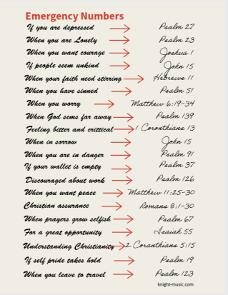 Emergency Numbers
If you are depressed Psalm 27
When you are Lonely Psalm 23
When you want courage Joshua 1
If people seem unkind John 15
When your faith need stirring Hebrews 11
When you have sinned Psalm 51
When you worry Matthew 6:19-34
When God seems far away Psalm 139
Feeling bitter and critical 1 Corinthians 13
When in sorrow John 15
When you are in danger Psalm 91
If your wallet is empty Psalm 37
Discouraged about work Psalm 126
When you want peace Matthew 11:25-30
Christian assurance Romans 8:1-30
When prayers grow selfish Psalm 67
For a great opportunity Isaiah 55
Understanding Christianity 2 Corinthians 5:15
If self pride takes hold Psalm 19
When you leave to travel Psalm 123
knight-music.com